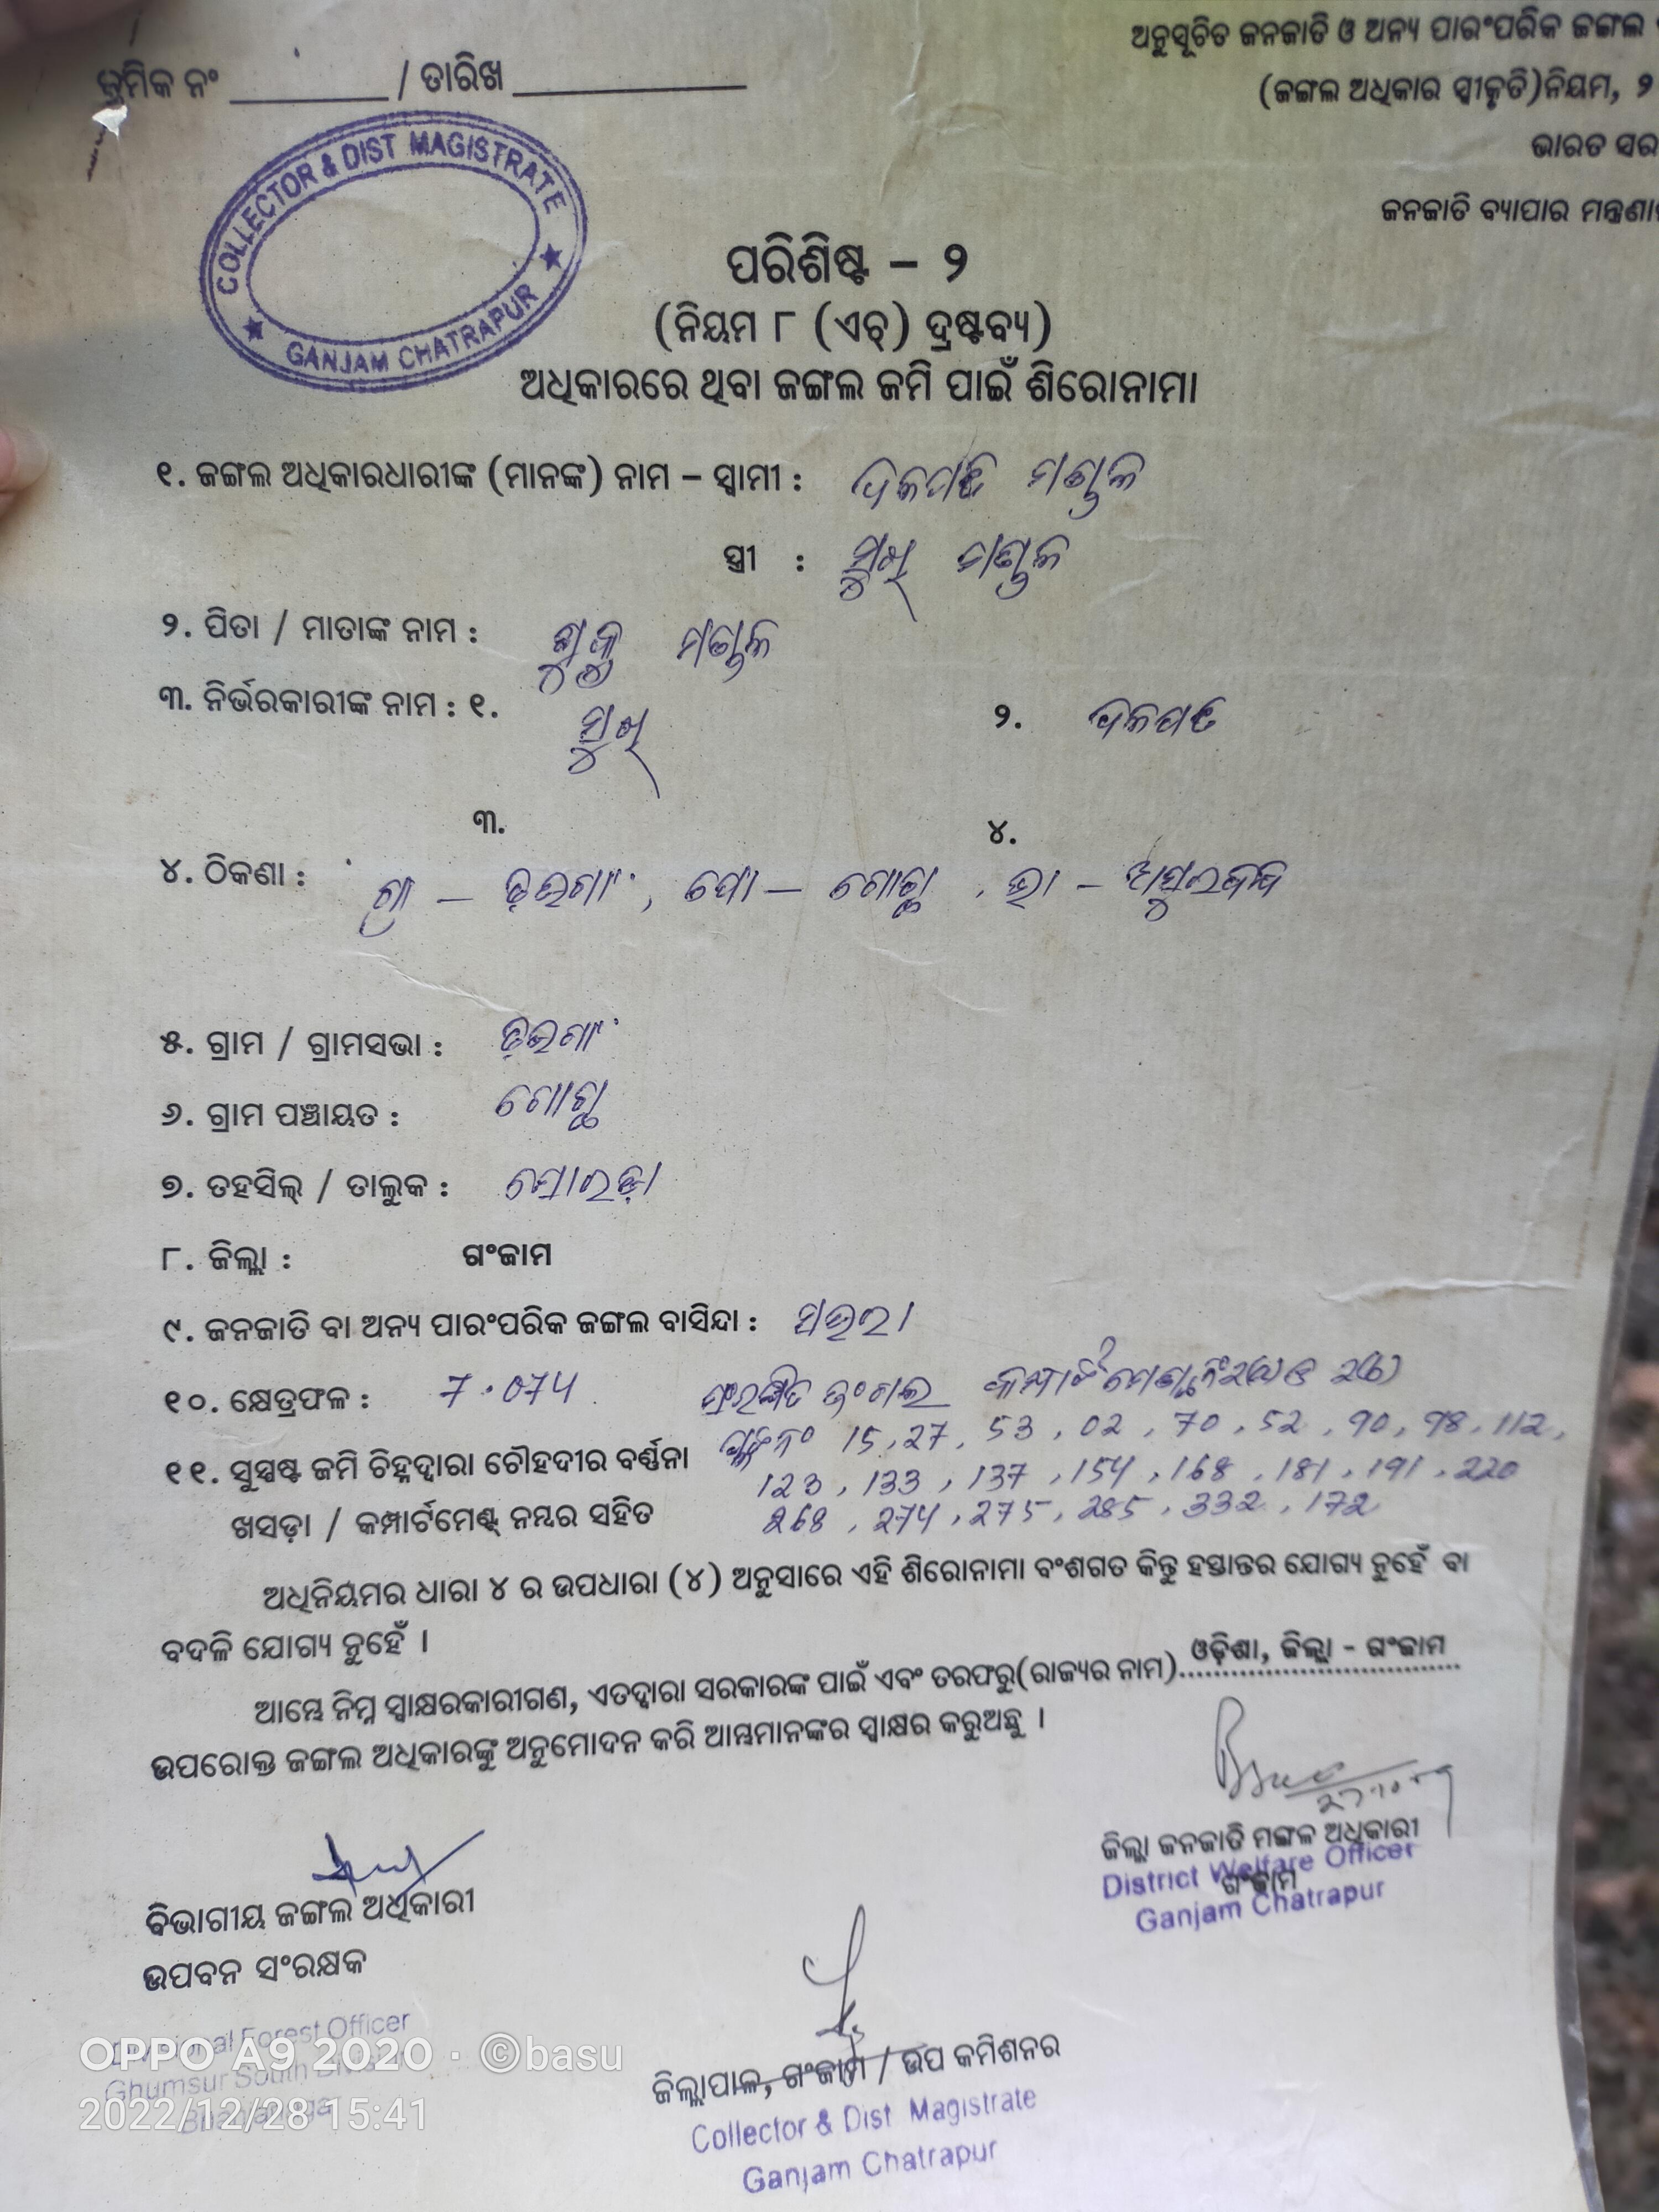 ଅନୁସୂଚିତ ଜନଜାତି ଓ ଅନ୍ୟ ପାରଂପରିକ ଜଙ୍ଗଲ
କ୍ରମିକ ନଂ ________ / ତାରିଖ ____________
(ଜଙ୍ଗଲ ଅଧିକାର ସ୍ୱୀକୃତି)ନିୟମ, ୨
ଭାରତ ସର
ଜନଜାତି ବ୍ୟାପାର ମନ୍ତ୍ରଣା
COLLECTOR & DIST MAGISTRATE
GANJAM CHATRAPUR
ପରିଶିଷ୍ଟ – ୨
(ନିୟମ ୮ (ଏଚ୍) ଦ୍ରଷ୍ଟବ୍ୟ)
ଅଧିକାରରେ ଥିବା ଜଙ୍ଗଲ ଜମି ପାଇଁ ଶିରୋନାମା
୧. ଜଙ୍ଗଲ ଅଧିକାରଧାରୀଙ୍କ (ମାନଙ୍କ) ନାମ – ସ୍ୱାମୀ : ମଣ୍ଡଳ
ସ୍ତ୍ରୀ : ମଣ୍ଡଳ
୨. ପିତା / ମାତାଙ୍କ ନାମ : ମଣ୍ଡଳ
୩. ନିର୍ଭରକାରୀଙ୍କ ନାମ : ୧. ୨.
୩. ୪.
୪. ଠିକଣା : ଗ୍ରା – , ପୋ – , ଭା –
୫. ଗ୍ରାମ / ଗ୍ରାମସଭା :
୬. ଗ୍ରାମ ପଞ୍ଚାୟତ :
୭. ତହସିଲ୍ / ତାଲୁକ : ସୋରଡ଼ା
୮. ଜିଲ୍ଲା : ଗଂଜାମ
୯. ଜନଜାତି ବା ଅନ୍ୟ ପାରଂପରିକ ଜଙ୍ଗଲ ବାସିନ୍ଦା : ସଉରା
୧୦. କ୍ଷେତ୍ରଫଳ : 7.074 ସଂରକ୍ଷିତ ଜଂଗଲ
୧୧. ସୁସ୍ପଷ୍ଟ ଜମି ଚିହ୍ନଦ୍ୱାରା ଚୌହଦୀର ବର୍ଣ୍ଣନା 15, 27, 53, 02, 70, 52, 90, 98, 112,
123, 133, 137, 154, 168, 181, 191, 220
ଖସଡ଼ା / କମ୍ପାର୍ଟମେଣ୍ଟ ନମ୍ବର ସହିତ 268, 274, 275, 285, 332, 172
ଅଧିନିୟମର ଧାରା ୪ ର ଉପଧାରା (୪) ଅନୁସାରେ ଏହି ଶିରୋନାମା ବଂଶଗତ କିନ୍ତୁ ହସ୍ତାନ୍ତର ଯୋଗ୍ୟ ନୁହେଁ ବା
ବଦଳି ଯୋଗ୍ୟ ନୁହେଁ ।
ଆମ୍ଭେ ନିମ୍ନ ସ୍ୱାକ୍ଷରକାରୀଗଣ, ଏତଦ୍ୱାରା ସରକାରଙ୍କ ପାଇଁ ଏବଂ ତରଫରୁ(ରାଜ୍ୟର ନାମ) ଓଡ଼ିଶା, ଜିଲ୍ଲା - ଗଂଜାମ
ଉପରୋକ୍ତ ଜଙ୍ଗଲ ଅଧିକାରଙ୍କୁ ଅନୁମୋଦନ କରି ଆମ୍ଭମାନଙ୍କର ସ୍ୱାକ୍ଷର କରୁଅଛୁ ।
ଜିଲ୍ଲା ଜନଜାତି ମଙ୍ଗଳ ଅଧିକାରୀ
ଗଂଜାମ
District Welfare Officer
Ganjam Chatrapur
ବିଭାଗୀୟ ଜଙ୍ଗଲ ଅଧିକାରୀ
ଉପବନ ସଂରକ୍ଷକ
Divisional Forest Officer
Ghumsur South Division
ଜିଲ୍ଲାପାଳ, ଗଂଜାମ / ଉପ କମିଶନର
Collector & Dist Magistrate
Ganjam Chatrapur
OPPO A9 2020 · ©basu
2022/12/28 15:41